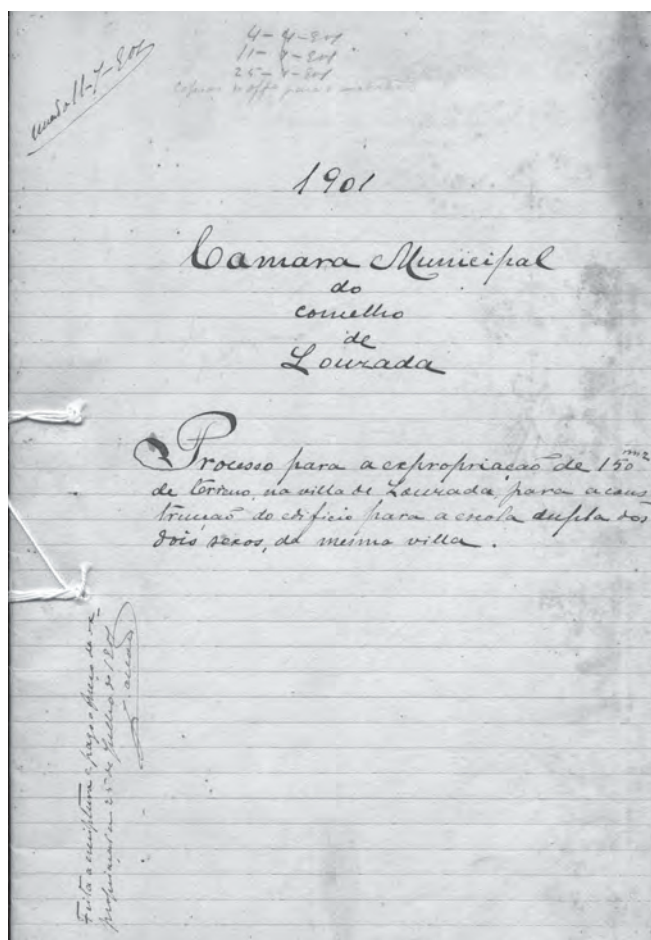 4-4-901
11-7-901
25-7-901
11-7-901
1901
Camara Municipal
do
concelho
de
Louzada
Processo para a expropriação de 150 m2
de terreno, na villa de Louzada, para a cons
trucção do edificio para a escola dupla dos
dois sexos, da mesma villa.
Feita a escriptura e pago o preço da ex-
propriação em 25 de Julho de 1901